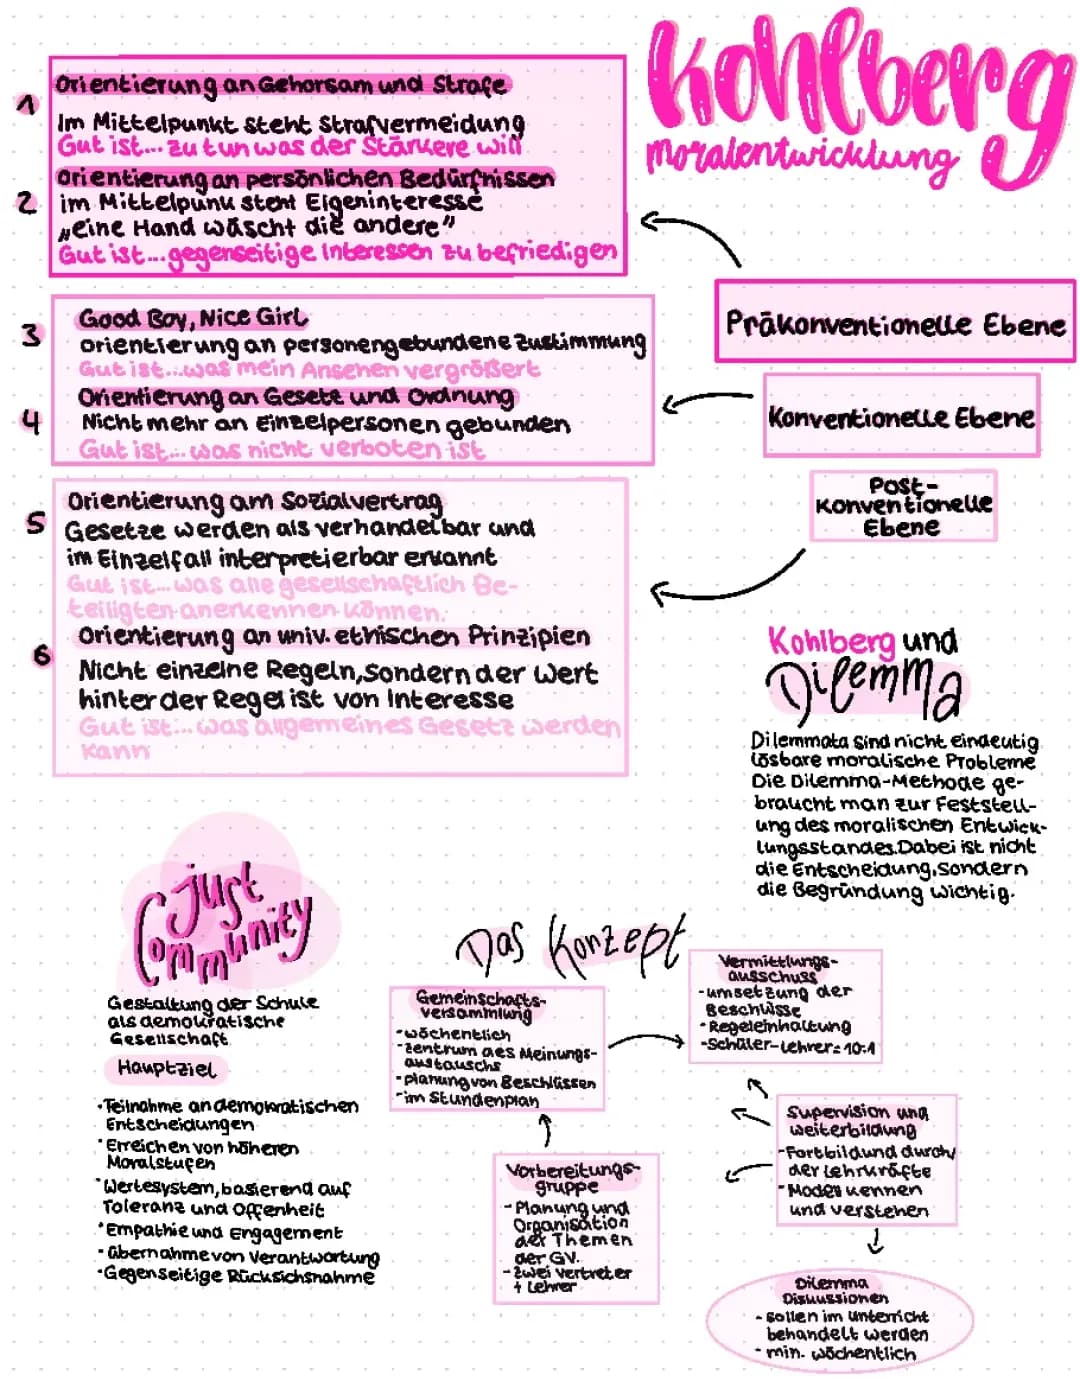 Kohlberg
moralentwicklung
1
Orientierung an Gehorsam und Strafe
Im Mittelpunkt steht Strafvermeidung
Gut ist... zu tun was der Stärkere will
2
Orientierung an persönlichen Bedürfnissen
im Mittelpunk steht Eigeninteresse
„eine Hand wäscht die andere"
Gut ist... gegenseitige Interessen zu befriedigen
Präkonventionelle Ebene
3
Good Boy, Nice Girl
orientierung an personengebundene Zustimmung
Gut ist...was mein Ansehen vergrößert
4
Orientierung an Gesetz und Ordnung
Nicht mehr an Einzelpersonen gebunden
Gut ist... was nicht verboten ist
Konventionelle Ebene
Post-
Konventionelle
Ebene
5
Orientierung am Sozialvertrag
Gesetze werden als verhandelbar und
im Einzelfall interpretierbar erkannt
Gut ist... was alle gesellschaftlich Be-
teiligten anerkennen können.
6
Orientierung an univ. ethischen Prinzipien
Nicht einzelne Regeln, sondern der Wert
hinter der Regel ist von Interesse
Gut ist... was allgemeines Gesetz werden
kann
Kohlberg und
Dilemma
Dilemmata sind nicht eindeutig
lösbare moralische Probleme
Die Dilemma-Methode ge-
braucht man zur Feststell-
ung des moralischen Entwick-
lungsstandes. Dabei ist nicht
die Entscheidung, sondern
die Begründung wichtig.
just
Community
Gestaltung der Schule
als demokratische
Gesellschaft
Hauptziel
• Teilnahme an demokratischen
Entscheidungen
• Erreichen von höheren
Moralstufen
• Wertesystem, basierend auf
Toleranz und Offenheit
• Empathie und Engagement
• übernahme von Verantwortung
• Gegenseitige Rücksichsnahme
Das Konzept
Gemeinschafts-
versammlung
- wöchentlich
- Zentrum des Meinungs-
austauschs
- planung von Beschlüssen
- im Stundenplan
Vermittlungs-
ausschuss
- umsetzung der
Beschlüsse
- Regeleinhaltung
- Schüler-Lehrer = 10:1
Vorbereitungs-
gruppe
- Planung und
Organisation
der Themen
der GV.
- zwei vertreter
+ Lehrer
Supervision und
weiterbildung
- Fortbildund durch/
der Lehrkräfte
- Modell kennen
und verstehen
Dilemma
Diskussionen
- sollen im unterricht
behandelt werden
- min. wöchentlich